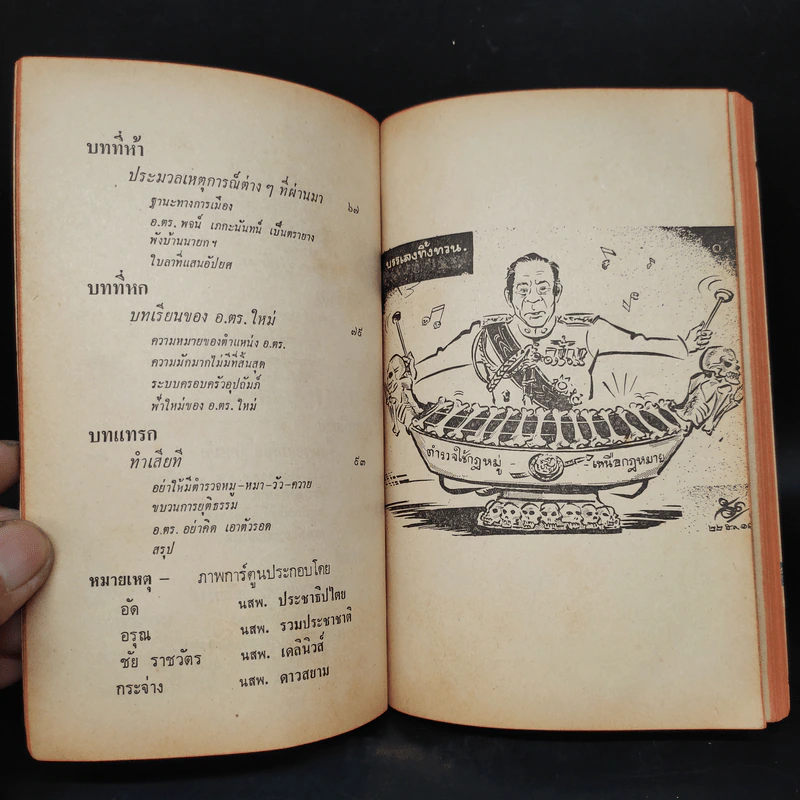 บทที่ห้า
ประมวลเหตุการณ์ต่าง ๆ ที่ผ่านมา ๖๗
ฐานะทางการเมือง
อ.ตร. พจน์ เภกะนันทน์ เป็นตรายาง
พังบ้านนายกฯ
ใบลาที่แสนอัปยศ
บทที่หก
บทเรียนของ อ.ตร.ใหม่ ๗๙
ความหมายของตำแหน่ง อ.ตร.
ความมักมากไม่มีที่สิ้นสุด
ระบบครอบครัวอุปถัมภ์
พ่อใหม่ของ อ.ตร.ใหม่
บทแทรก
ทำเสียที ๙๓
อย่าให้มีตำรวจหมู-หมา-วัว-ควาย
ขบวนการยุติธรรม
อ.ตร. อย่าคิด เอาตัวรอด
สรุป
หมายเหตุ – ภาพการ์ตูนประกอบโดย
อัด นสพ. ประชาธิปไตย
อรุณ นสพ. รวมประชาชาติ
ชัย ราชวัตร นสพ. เดลินิวส์
กระจ่าง นสพ. ดาวสยาม
บรรเลงทิ้งทวน.
ตำรวจใช้กฎหมู่ เหนือกฎหมาย